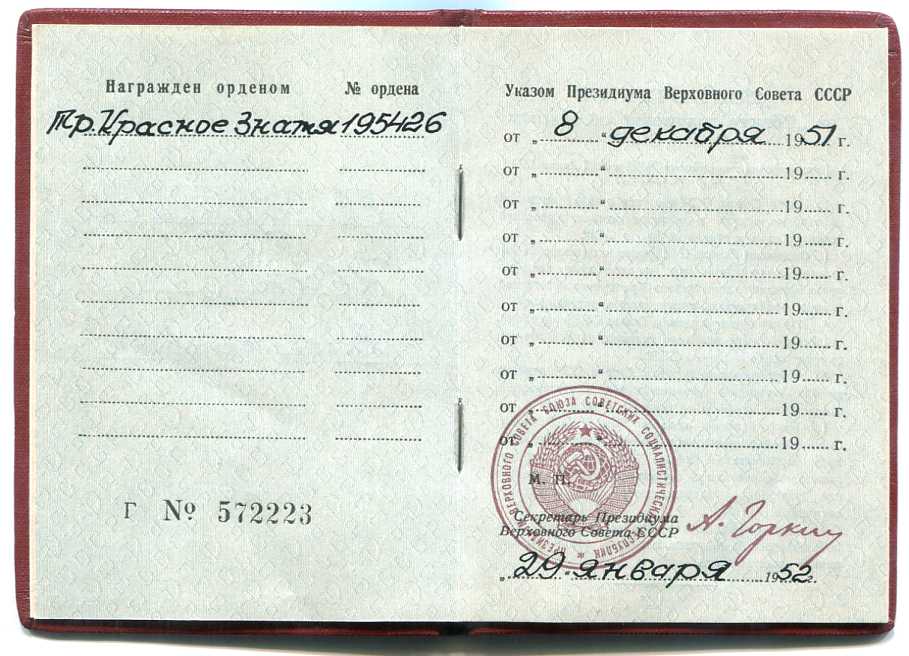 Награжден орденом № ордена
Тр.Красное Знамя 195426
Г № 572223
Указом Президиума Верховного Совета СССР
от „ 8 “ декабря 1951 г.
от „ “ 19 г.
от „ “ 19 г.
от „ “ 19 г.
от „ “ 19 г.
от „ “ 19 г.
от „ “ 19 г.
от „ “ 19 г.
от „ “ 19 г.
от „ “ 19 г.
М. П.
Секретарь Президиума
Верховного Совета СССР
А. Горкин
„ 29 . января 1952 г.
ВЕРХОВНОГО СОВЕТА СОЮЗА СОВЕТСКИХ СОЦИАЛИСТИЧЕСКИХ